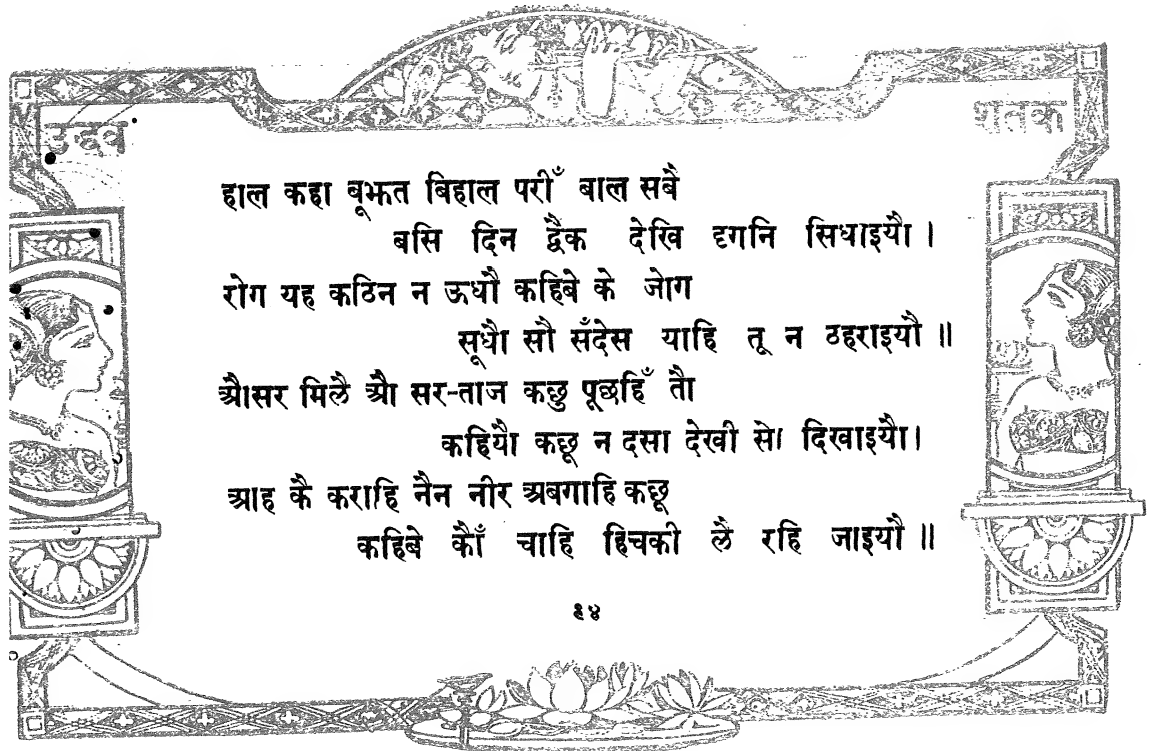 उद्धव
शतक
हाल कहा बूझत बिहाल परीँ बाल सबै
बसि दिन द्वैक देखि दृगनि सिधाइयौ ।
रोग यह कठिन न ऊधौ कहिबे के जोग
सूधौ सौ सँदेस याहि तू न ठहराइयौ ॥
औसर मिलै औ सर-ताज कछु पूछहिँ तौ
कहियौ कछू न दसा देखी सो दिखाइयौ।
आह कै कराहि नैन नीर अबगाहि कछू
कहिबे कौँ चाहि हिचकी लै रहि जाइयौ ॥
९४